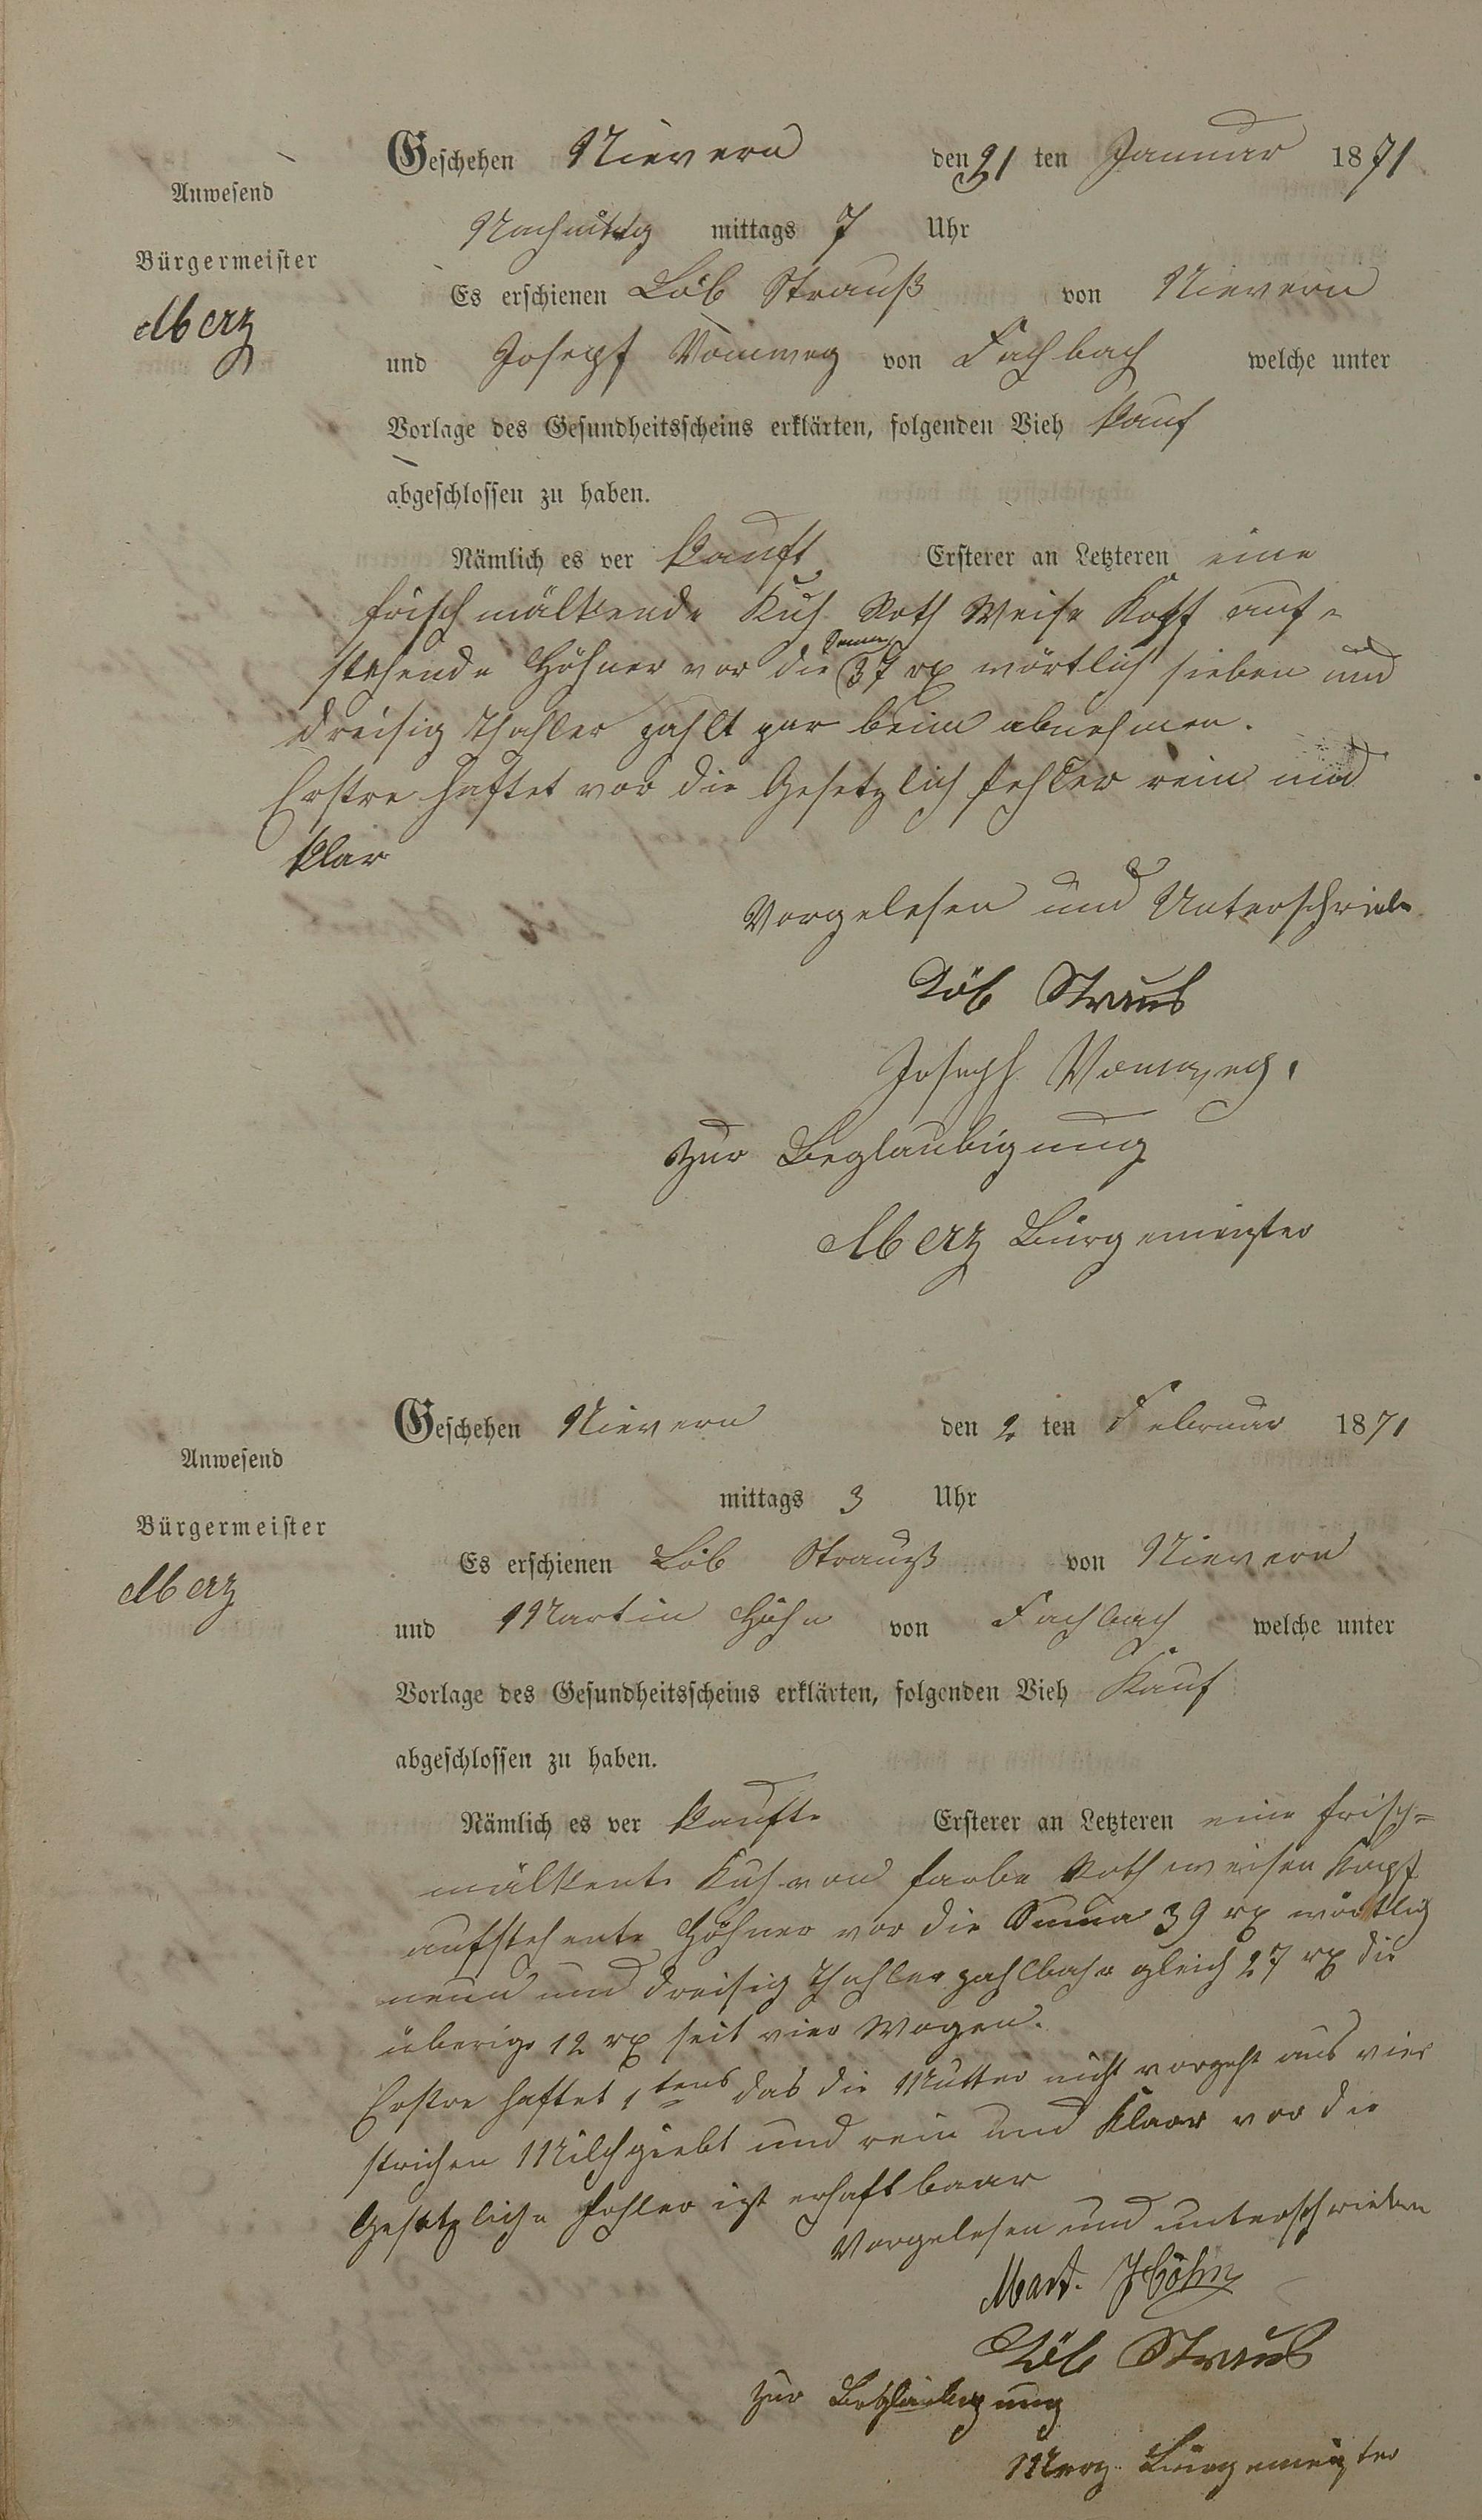 Geschehen Nievern den 21 ten Januar 1871
Anwesend
Nachmittag mittags 7 Uhr
Bürgermeister
Es erschienen Löb Strauß von Nievern
Merz
und Josepf Vomweg von Fachbach welche unter
Vorlage des Gesundheitsscheins erklärten, folgenden Vieh kauf
abgeschlossen zu haben.
Nämlich es ver kauft Ersterer an Letzteren eine
frisch mälkende Kuh Roth Weise Kopf auf-
stehende Höhner vor die Suma 37 rx wörtlich sieben und
dreisig Thahler zahlt par beim abnehmen.
Erstre haftet vor die Gesetzlich fehler rein und
klar
Vorgelesen und Unterschrieben
Löb Straus
Joseph Vomweg.
Zur Beglaubigung
Merz Bürgemeister
Geschehen Nievern den 2 ten Februar 1871
Anwesend
mittags 3 Uhr
Bürgermeister
Es erschienen Löb Strauß von Nievern
Merz
und Martin Höhn von Fachbach welche unter
Vorlage des Gesundheitsscheins erklärten, folgenden Vieh Kauf
abgeschlossen zu haben.
Nämlich es ver kaufte Ersterer an Letzteren eine frisch-
mälkente Kuh von farbe Roth weisen Kopf
aufstehente Höhner vor die Suma 39 rx wörtlig
neun und dreisig Thahler zahlbahr gleich 27 rx die
überige 12 rx seit vier Wogen.
Erstre haftet 1tens das die Mutter nicht vorgeht aus vier
strichen Milch giebt und rein und Klaar vor die
Gesetzliche fehler ist erhaftbaar
Vorgelesen und unterschrieben
Mart. Höhn
Löb Straus
Zur Beglaubigung
Merz Bürgemeister